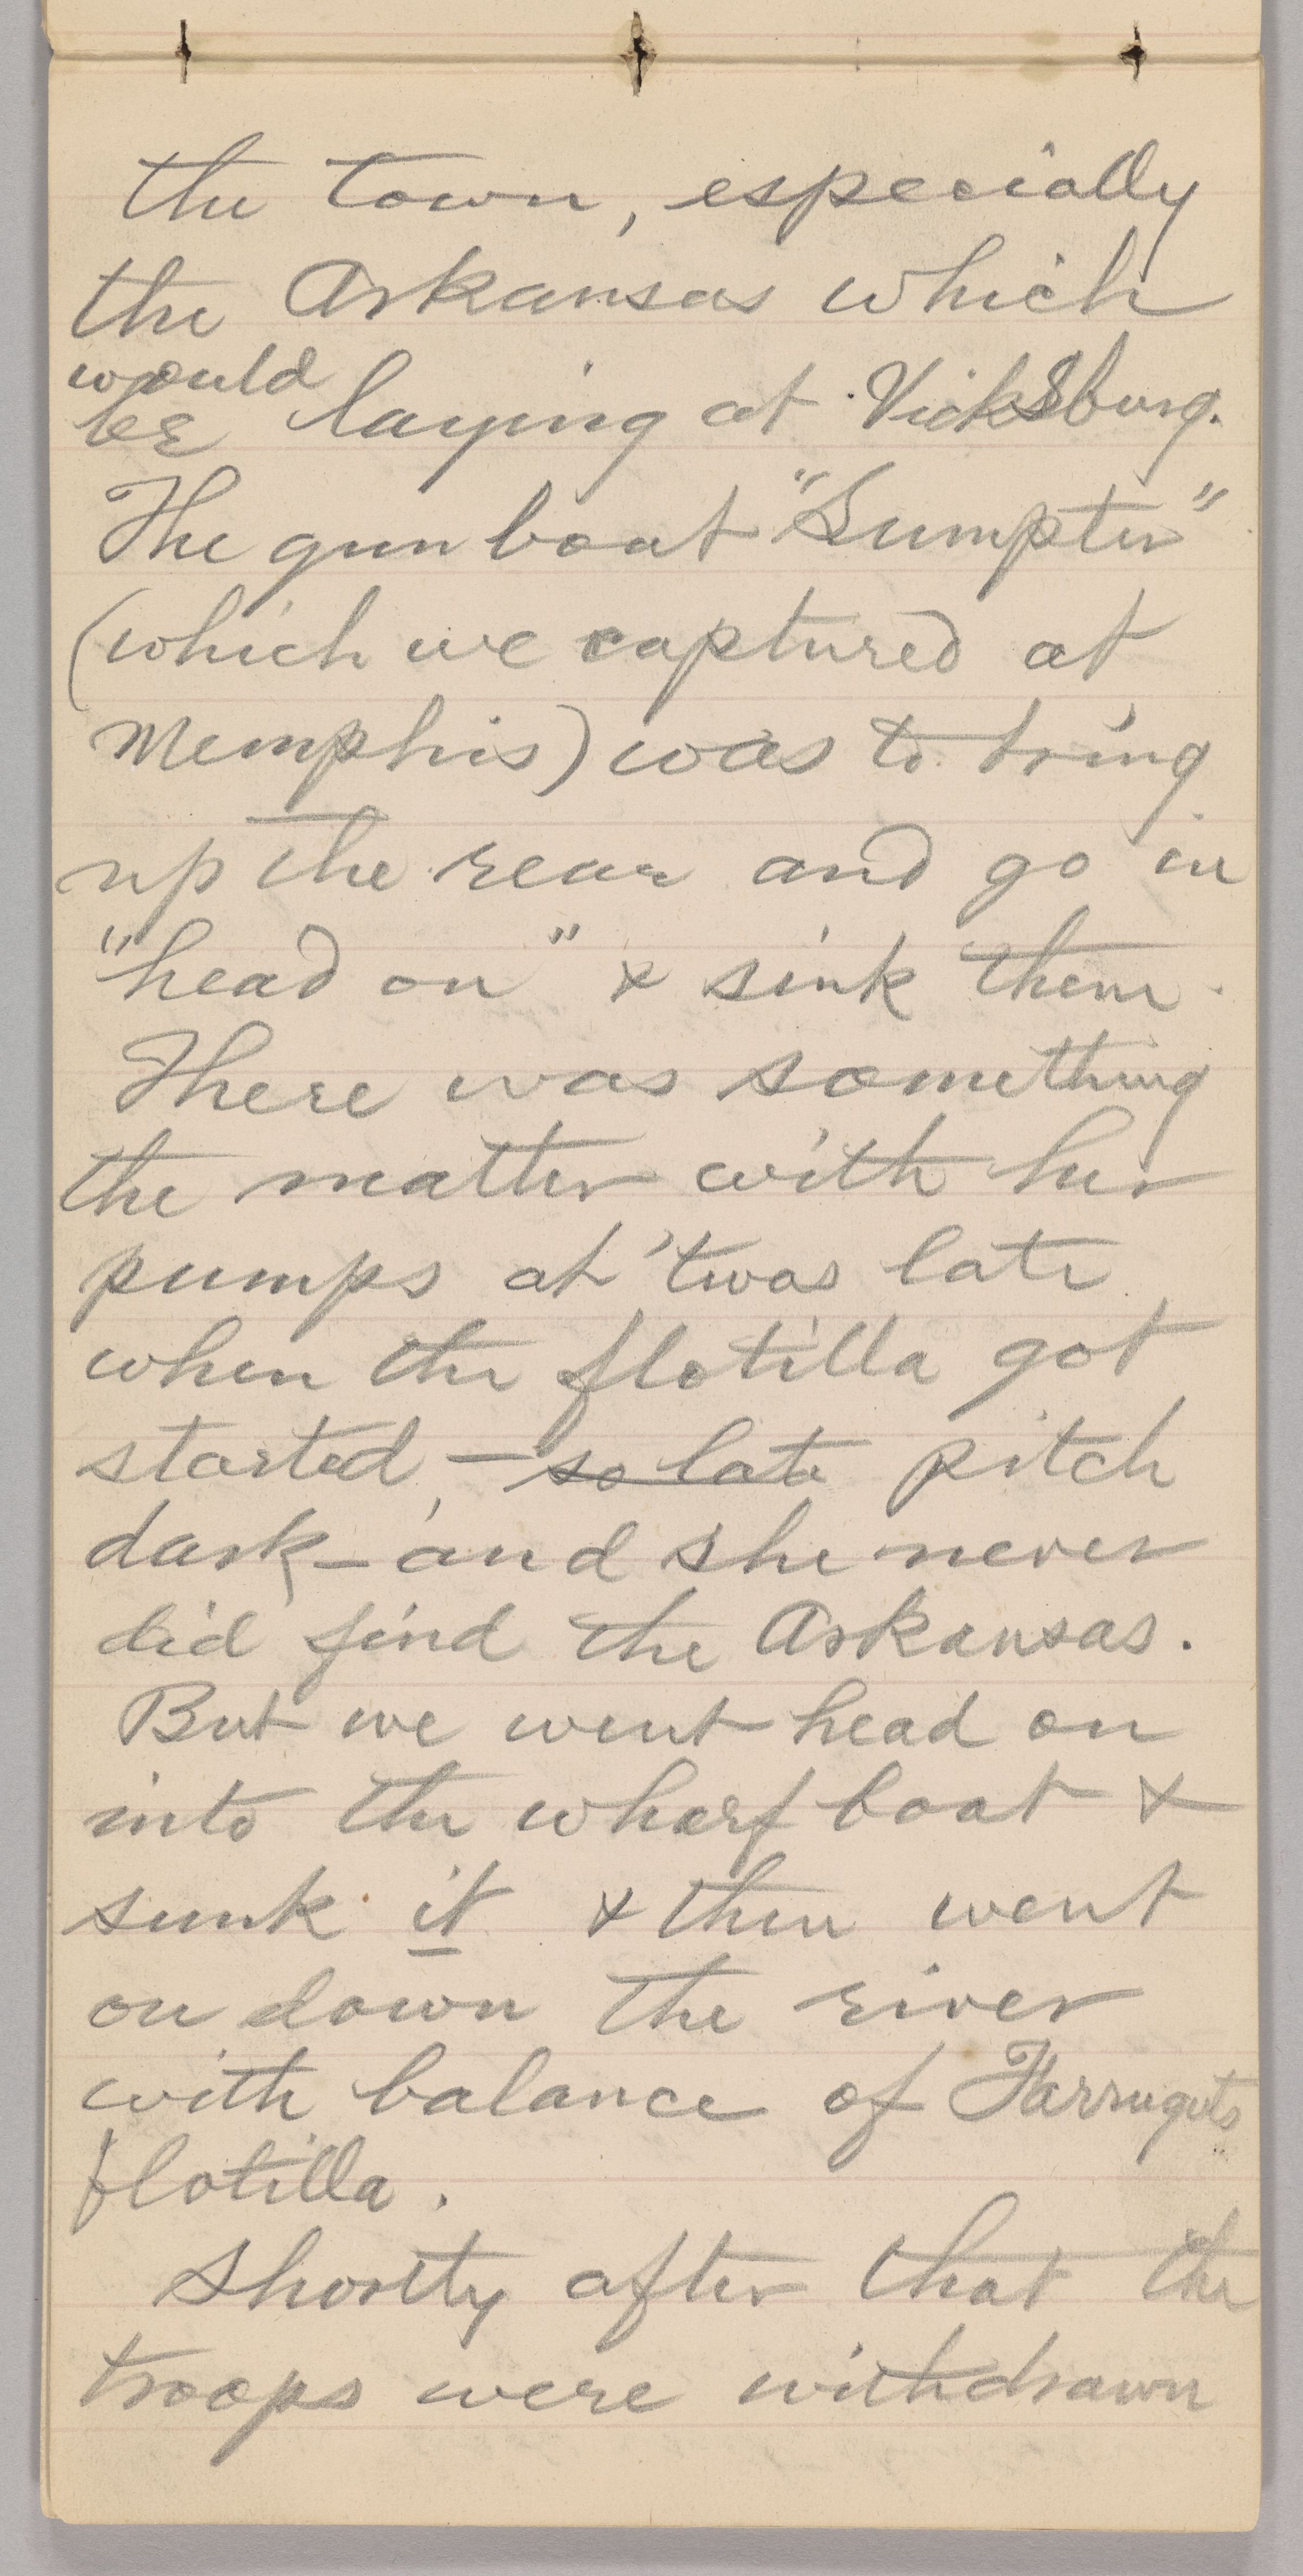 the town, especially
the Arkansas which
would
be laying at Vicksburg.
The gun boat "Sumpter"
(which we captured at
Memphis) was to bring
up the rear and go in
"head on" & sink them.
There was something
the matter with her
pumps at 'twas late
when the flotilla got
started, - so late pitch
dark - and she never
did find the Arkansas.
But we went head on
into the wharf boat &
sunk it & then went
on down the river
with balance of Farrugets
flotilla.
Shortly after that the
troops were withdrawn